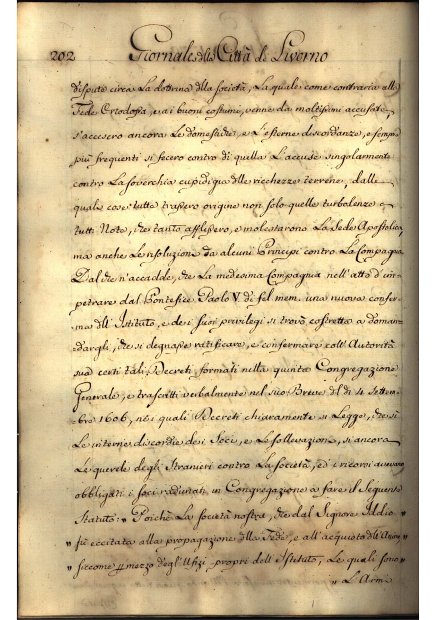 202 Giornale della Città di Livorno
dispute circa La dottrina della Società, La quale come contraria alla
Fede Ortodossa, e ai buoni costumi, venne da moltissimi accusata,
s'accesero ancora Le domestiche, e L'esterne discordanze, e sempre
più frequenti si fecero contro di quella L'accuse singolarmente
contro La soverchia cupidigia delle ricchezze terrene, dalle
quali cose tutte trassero origine non solo quelle turbolenze a
tutti Note, che tanto afflissero, e molestarono La Sede Apostolica
ma anche Le risoluzioni da alcuni Principi contro La Compagnia
Dal che n'accadde, che La medesima Compagnia nell'atto d'im-
petrare dal Pontefice Paolo V. di fel. mem. una nuova confer-
ma dell'Istituto, e dei suoi privilegi si trovò costretta a doman-
dargli, che si degnasse ratificare, e confermare coll'Autorità
sua certi tali Decreti formati nella quinta Congregazione
Generale, e trascritti verbalmente nel suo Breve del di 4 Settem-
bre 1606, nei quali Decreti chiaramente si Legge, che sì
Le interne discordie dei Soci, e Le sollevazione, sì ancora
Le querele degli Stranieri contro La Società, ed i ricorsi avevano
obbligati i soci radunati in Congregazione a fare il Seguente
Statuto: " Poichè La Società nostra, che dal Signore Iddio
" fù eccitata alla propagazione della Fede, e all'acquisto dell'Anime "
" siccome p mezzo degl'Ufizi propri dell'Istituto, Le quali sono "
" L'Armi